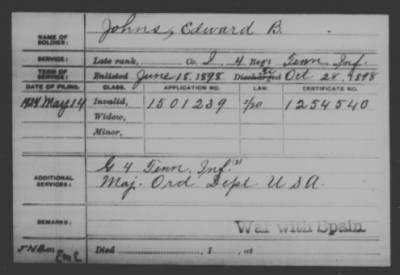 NAME OF SOLDIER: Johns, Edward B.
SERVICE: Late rank, Co. I, 4 Reg't Tenn Inf.
TERM OF SERVICE: Enlisted June 15, 1898 Discharged Oct 28, 1898
DATE OF FILING. CLASS. APPLICATION NO. LAW. CERTIFICATE NO.
May 14 Invalid, 1501239 1254540
Widow,
Minor,
ADDITIONAL SERVICES: G 4 Tenn. Inf.
Maj. Ord Dept U S A.
REMARKS: War with Spain.
Died , 1 , at